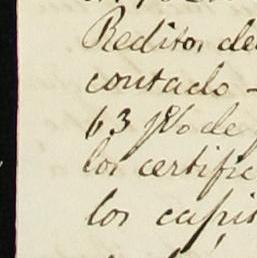 Reditos de
contado -
63 p% de
los certific
los capit